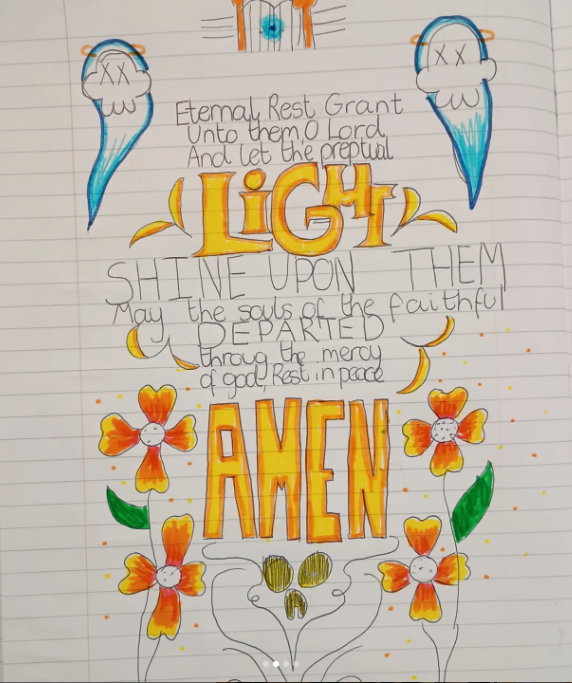 X X
X X
Eternal Rest Grant
Unto them, O Lord
And let the preptual
LiGHt
SHINE UPON THEM
May the souls of the faithful
DEPARTED
throug the mercy
of god, Rest in peace
AMEN